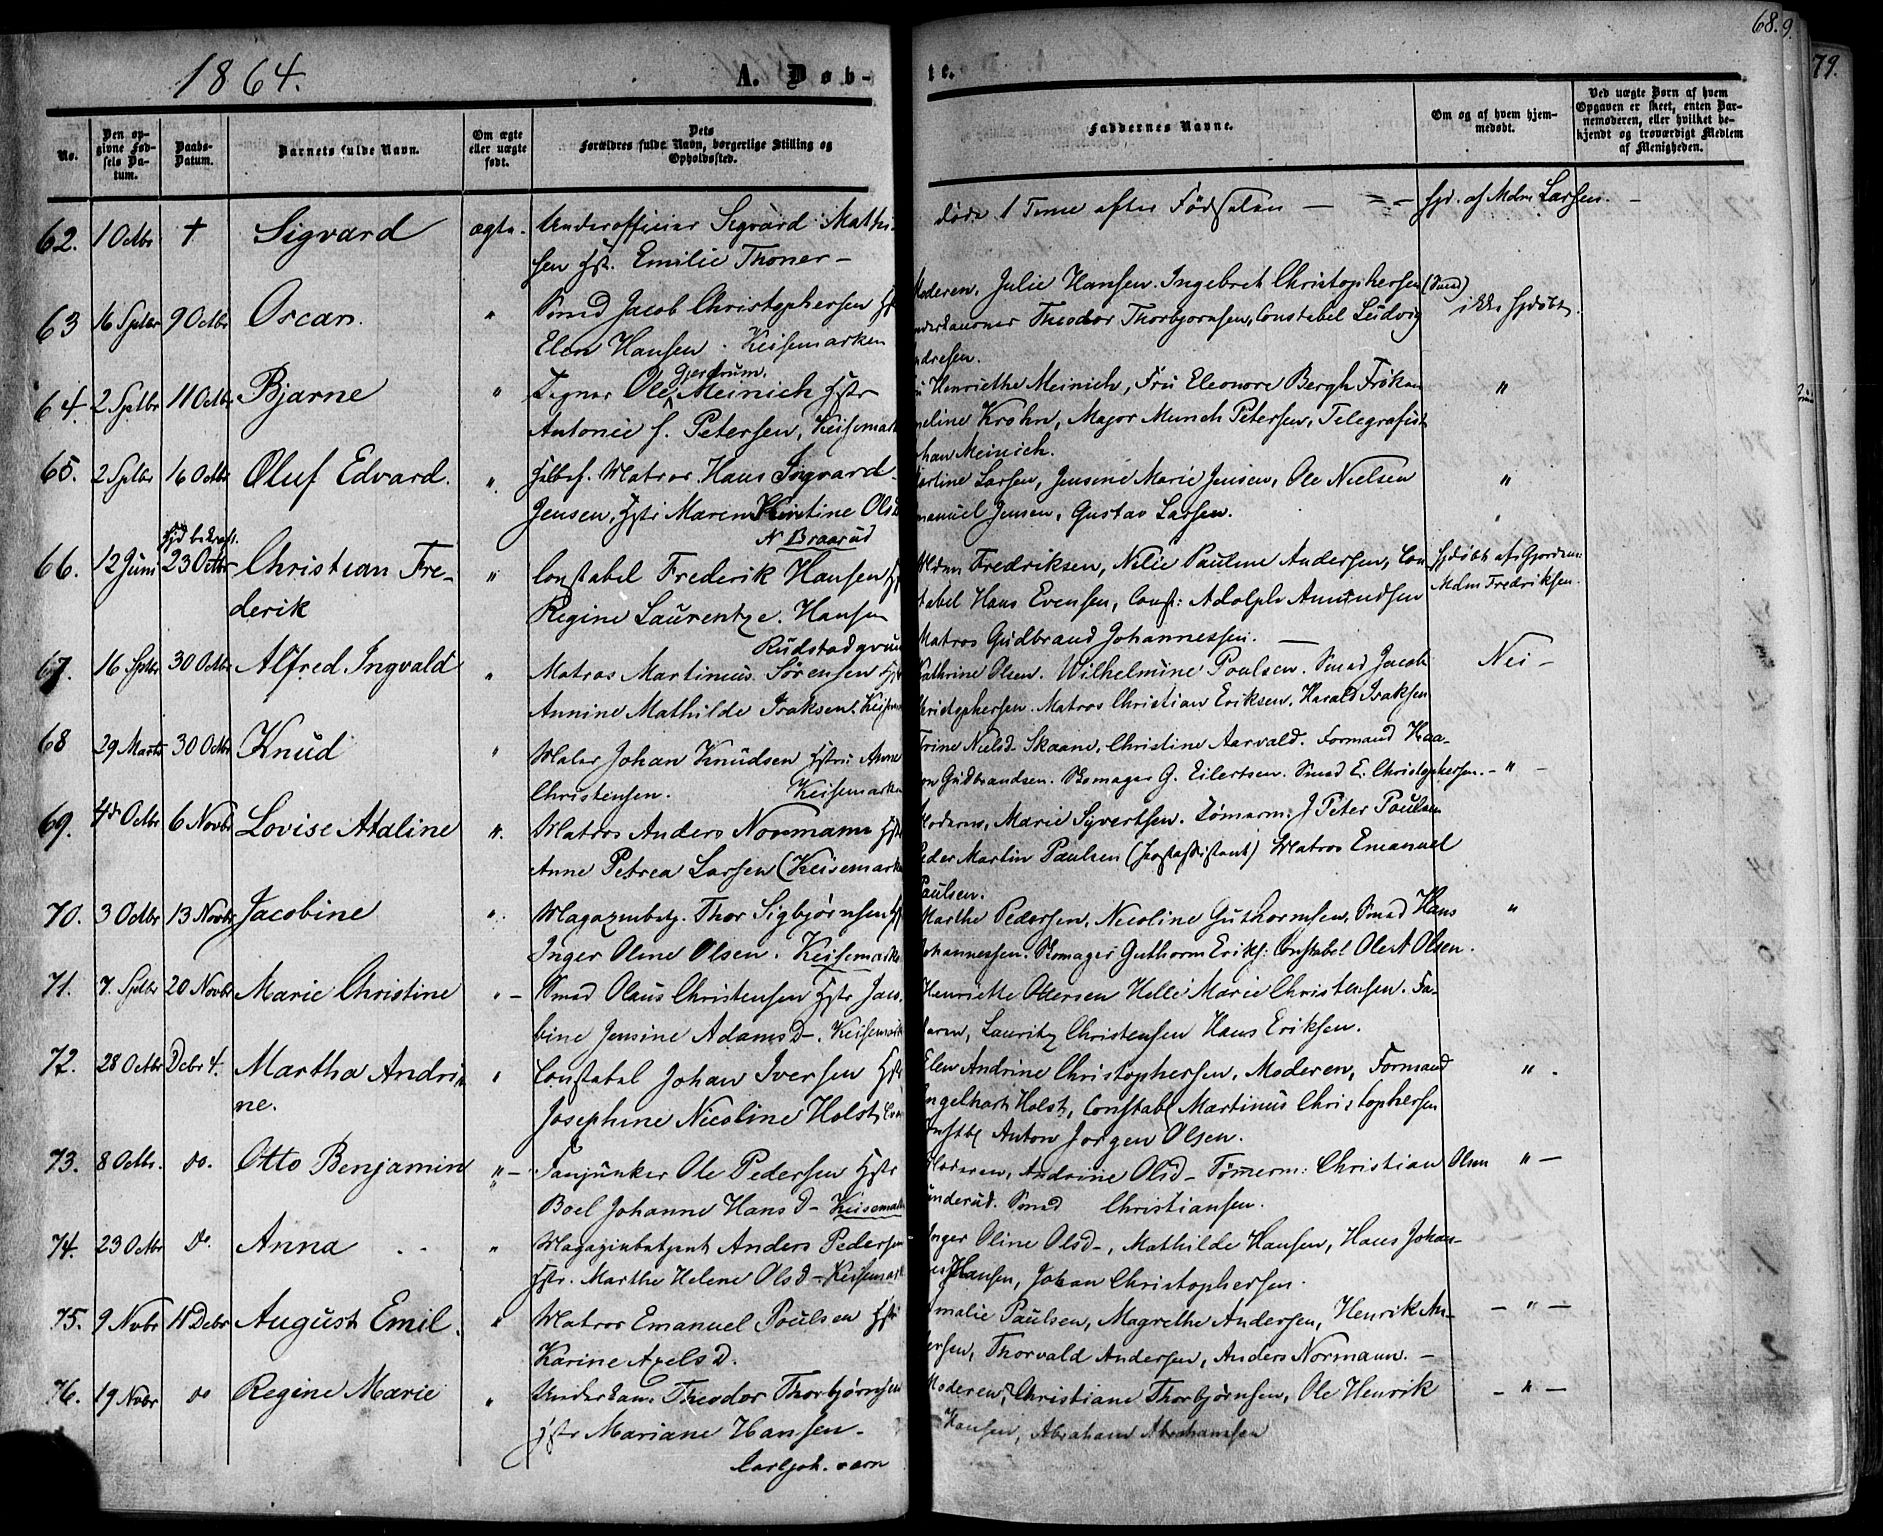 1864.
A. Døb-
te.
68.
9.
79.
No.
Den op-
givne Fød-
sels Da-
tum.
Daabs-
Datum.
Barnets fulde Navn.
Om ægte
eller uægte
født.
Dets
Forældres fulde Navn, borgerlige Stilling og
Opholdssted.
Faddernes Navne.
Om og af hvem hjem-
medøbt.
Ved uægte Børn af hvem
Opgaven er skeet, enten Bar-
nemoderen, eller hvilket be-
kjendt og troværdigt Medlem
af Menigheden.
62. 1 Octbr † Sigvard ægte. Underofficier Sigvard Mathi-
sen Hstr. Emilie Thoner -
døde 1 Time efter Fødselen - hjd. af Mdm Larsen. -
63 16 Sptbr 9 Octbr Oscar. " Smed Jacob Christophersen
Elen Hansen. Keisemarken
Moderen, Julie Hansen. Ingebret Christophersen (Smed)
Theodor Thorbjørnsen, Constabel Ludvig
Andresen.
ikke hjdøbt.
64. 2 Sptbr 11 Octbr Bjarne " Tegner Ole Gjerdrum Meinich Hstr
Antonie f. Petersen, Keisemark
Henriethe Meinich, Fru Eleonore Bergh Frøken
Krohn, Major Munch Petersen, Telegrafist
Johan Meinich.
"
65. 2 Sptbr 16 Octbr Oluf Edvard. " Matros Hans Sigvard
Jensen, Hstr Maren Kirstine Olsd
N Braarud
Martine Larsen, Jensine Marie Jensen, Ole Nielsen
Emanuel Jensen, Gustav Larsen.
"
66. 12 Juni hjd bekræft. 23 Octbr Christian Fre-
derik
" Constabel Frederik Hansen
Regine Laurentze. Hansen
Rudstadgrund
Mdm Fredriksen, Nelie Pauline Andersen, Con
stabel Hans Evensen, Const: Adolph Amundsen
Matros Gudbrand Johannessen. -
hjdøbt af Gjordem:
Mdm Fredriksen.
67. 16 Sptbr 30 Octbr Alfred Ingvald " Matros Martinus Sørensen
Annine Mathilde Isaksen. Keisem
Kathrine Olsen. Wilhelmine Poulsen. Smed Jacob
Christophersen. Matros Christian Eriksen. Harald Isaksen
Nei -
68 29 Marts 30 Octbr Knud " Maler Johan Knudsen Hstr: Anne
Christensen. Keisemarken
Trine Nielsd. Skaane, Christine Aarvald. Formand Haa-
kon Gudbrandsen. Skomager G. Eilertsen. Smed E. Christophersen. - " -
69. 4de Octbr 6 Novbr Lovise Adaline " Matros Anders Normann Hstr
Anne Petrea Larsen (Keisemarken
Moderen, Marie Syvertsen. Tømerm: J Peter Poulsen
Peder Martin Paulsen Matros Emanuel
Paulsen.
70. 3 Octbr 13 Novbr Jacobine " Magazinbetj. Thor Sigbjørnsen
Inger Oline Olsen. Keisemark
Marthe Pedersen, Nicoline Guthormsen, Smed Hans
Johannessen. Skomager Guthorm Eriks: Constabel Ole A Olsen.
"
71. 7. Sptbr 20 Novbr Marie Christine " - Smed Olaus Christensen Hstr Jaco-
bine Jensine Adamsd -. Keisemark
Henriette Ottersen Helle Marie Christensen. Fa-
deren, Lauritz Christensen Hans Eriksen.
72. 28 Octbr Debr 4. Martha Andri
ne.
" Constabel Johan Iversen Hstr
Josephine Nicoline Holst
Elen Andrine Christophersen, Moderen, Formand
Engelhart Holst, Constabl Martinus Christophersen
Constbl Anton Jørgen Olsen.
" -
73. 8 Octbr. do. Otto Benjamin " - Fanjunker Ole Pedersen Hstr
Boel Johanne Hansd - Keisemark
Moderen, Andrine Olsd - Tømerm: Christian Olsen
Sunderud. Smed Christiansen.
" -
74. 23 Octbr do. Anna " Magazinbetjent Anders Pedersen
Hstr. Marthe Helene Olsd - Keisemark
Inger Oline Olsd -, Mathilde Hansen, Hans Johan-
Hansen, Johan Christophersen.
75. 9 Novbr 11 Debr August Emil. " Matros Emanuel Poulsen Hstr
Karine Axelsd.
Amalie Paulsen, Magrethe Andersen, Henrik An-
dersen, Thorvald Andersen, Anders Normann. -
- " -
76. 19 Novbr do Regine Marie " Theodor Thorbjørnsen
Hstr Mariane Hansen -
Carljoh. værn
Moderen, Christiane Thorbjørnsen, Ole Henrik
Hansen, Abraham Abrahamsen
- " -